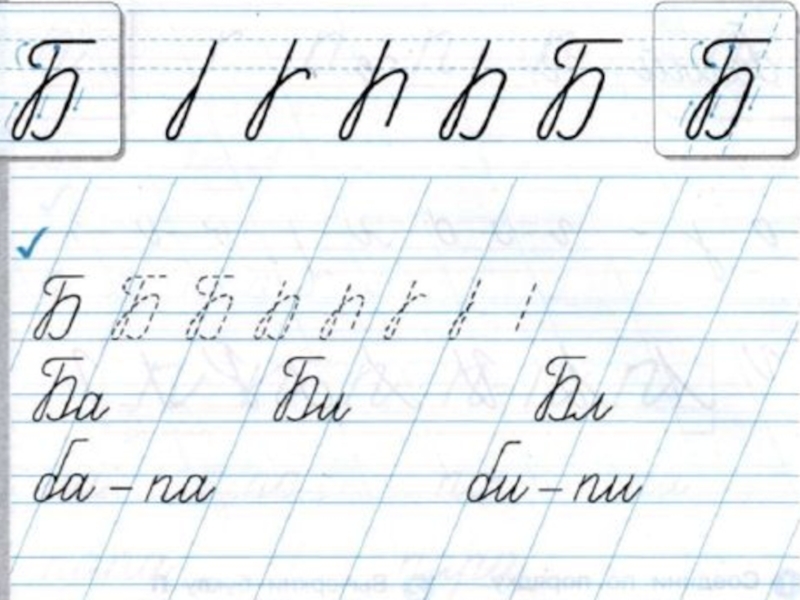 Б Б Б
Б Б Б
Ба Би Бл
ба – па би – пи